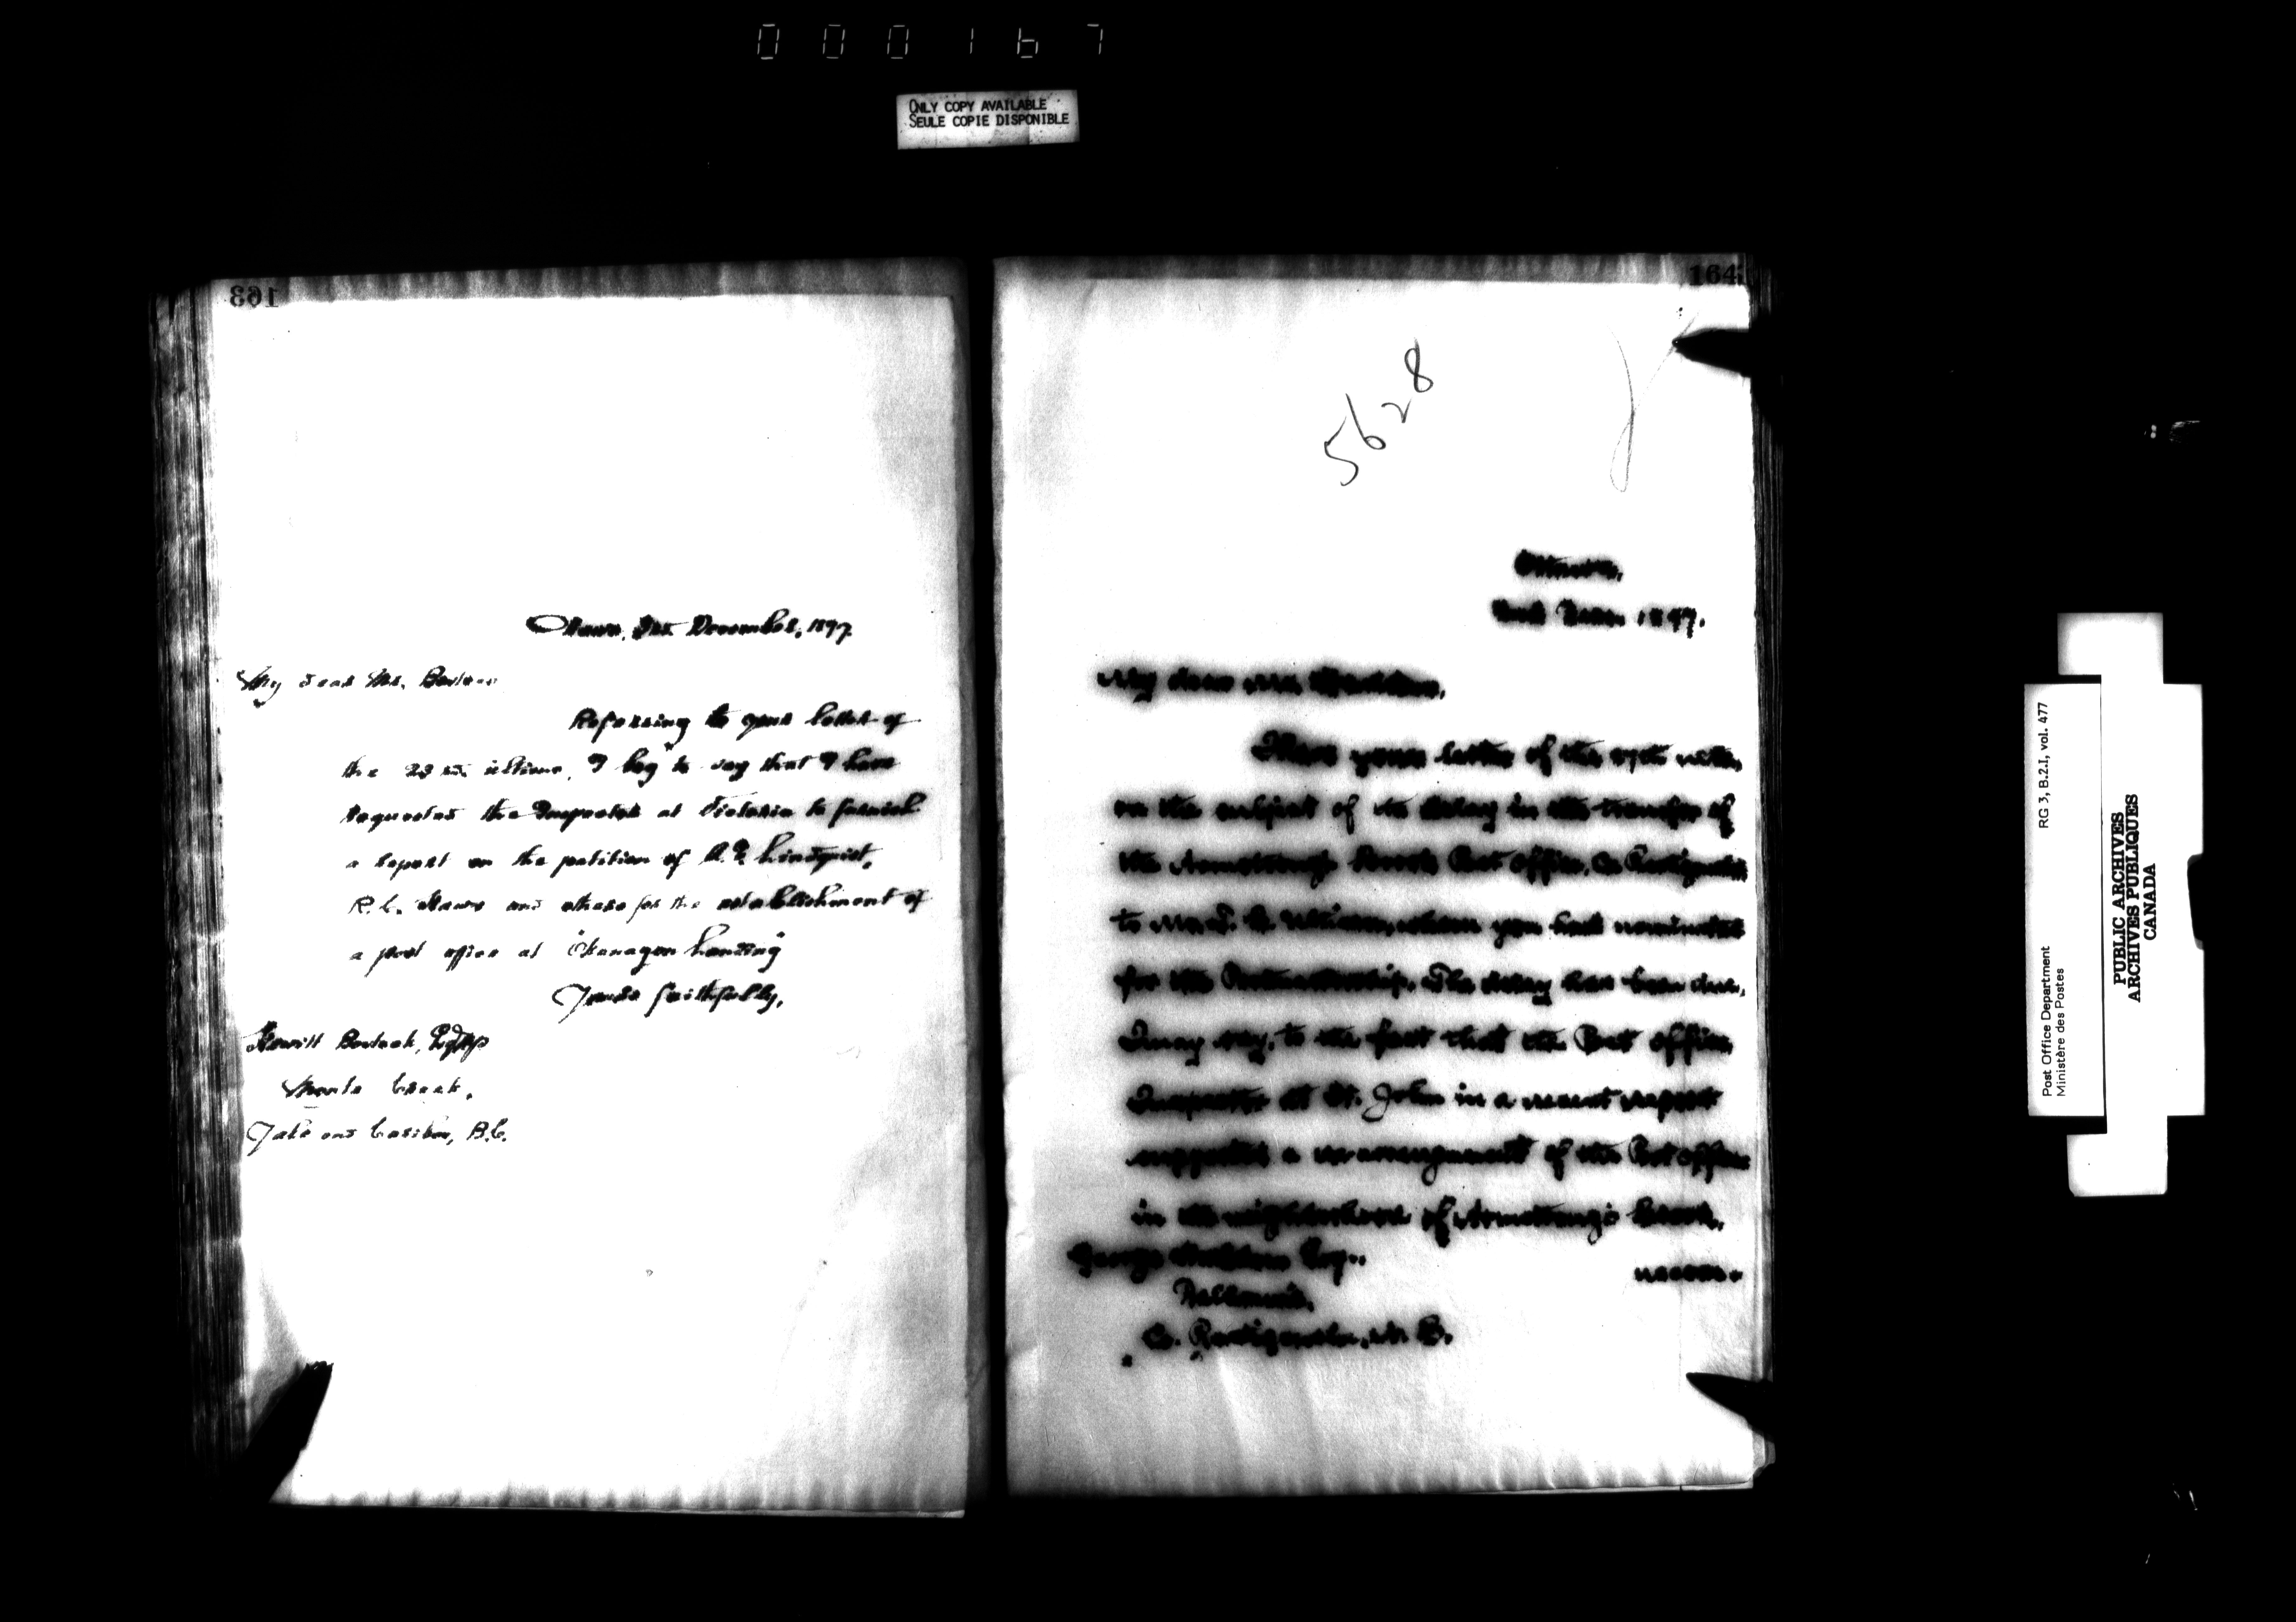 000167
ONLY COPY AVAILABLE
SEULE COPIE DISPONIBLE
163
Ottawa, December, 1897.
My dear Mr. Bostock
Referring to your letter of
the 23rd ultimo, I beg to say that I have
requested the Inspector at Victoria to furnish
a report on the petition of Lindquist,
R.C. and others for the establishment of
a post office at "Okanagan Landing"
Yours faithfully,
Hewitt Bostock, Esq. M.P.
Monte Creek,
Yale and Cariboo, B.C.
164
5628
Ottawa,
Decr. 1897.
My dear Mr. Haddow,
I have your letter of the 27th ulto,
on the subject of the delay in the transfer of
the Armstrong's Brook Post Office, Co. Restigouche
to Mr. whom you had nominated
for the Postmastership. The delay has been due,
I may say, to the fact that the Post Office
Inspector at St. John in a recent report
suggested a re-arrangement of the Post Offices
in the neighborhood of Armstrong's Brook,
George Haddow Esq.,
Dalhousie,
Co. Restigouche, N. B.
RG 3, B.2.I, vol. 477
Post Office Department
Ministère des Postes
PUBLIC ARCHIVES
ARCHIVES PUBLIQUES
CANADA